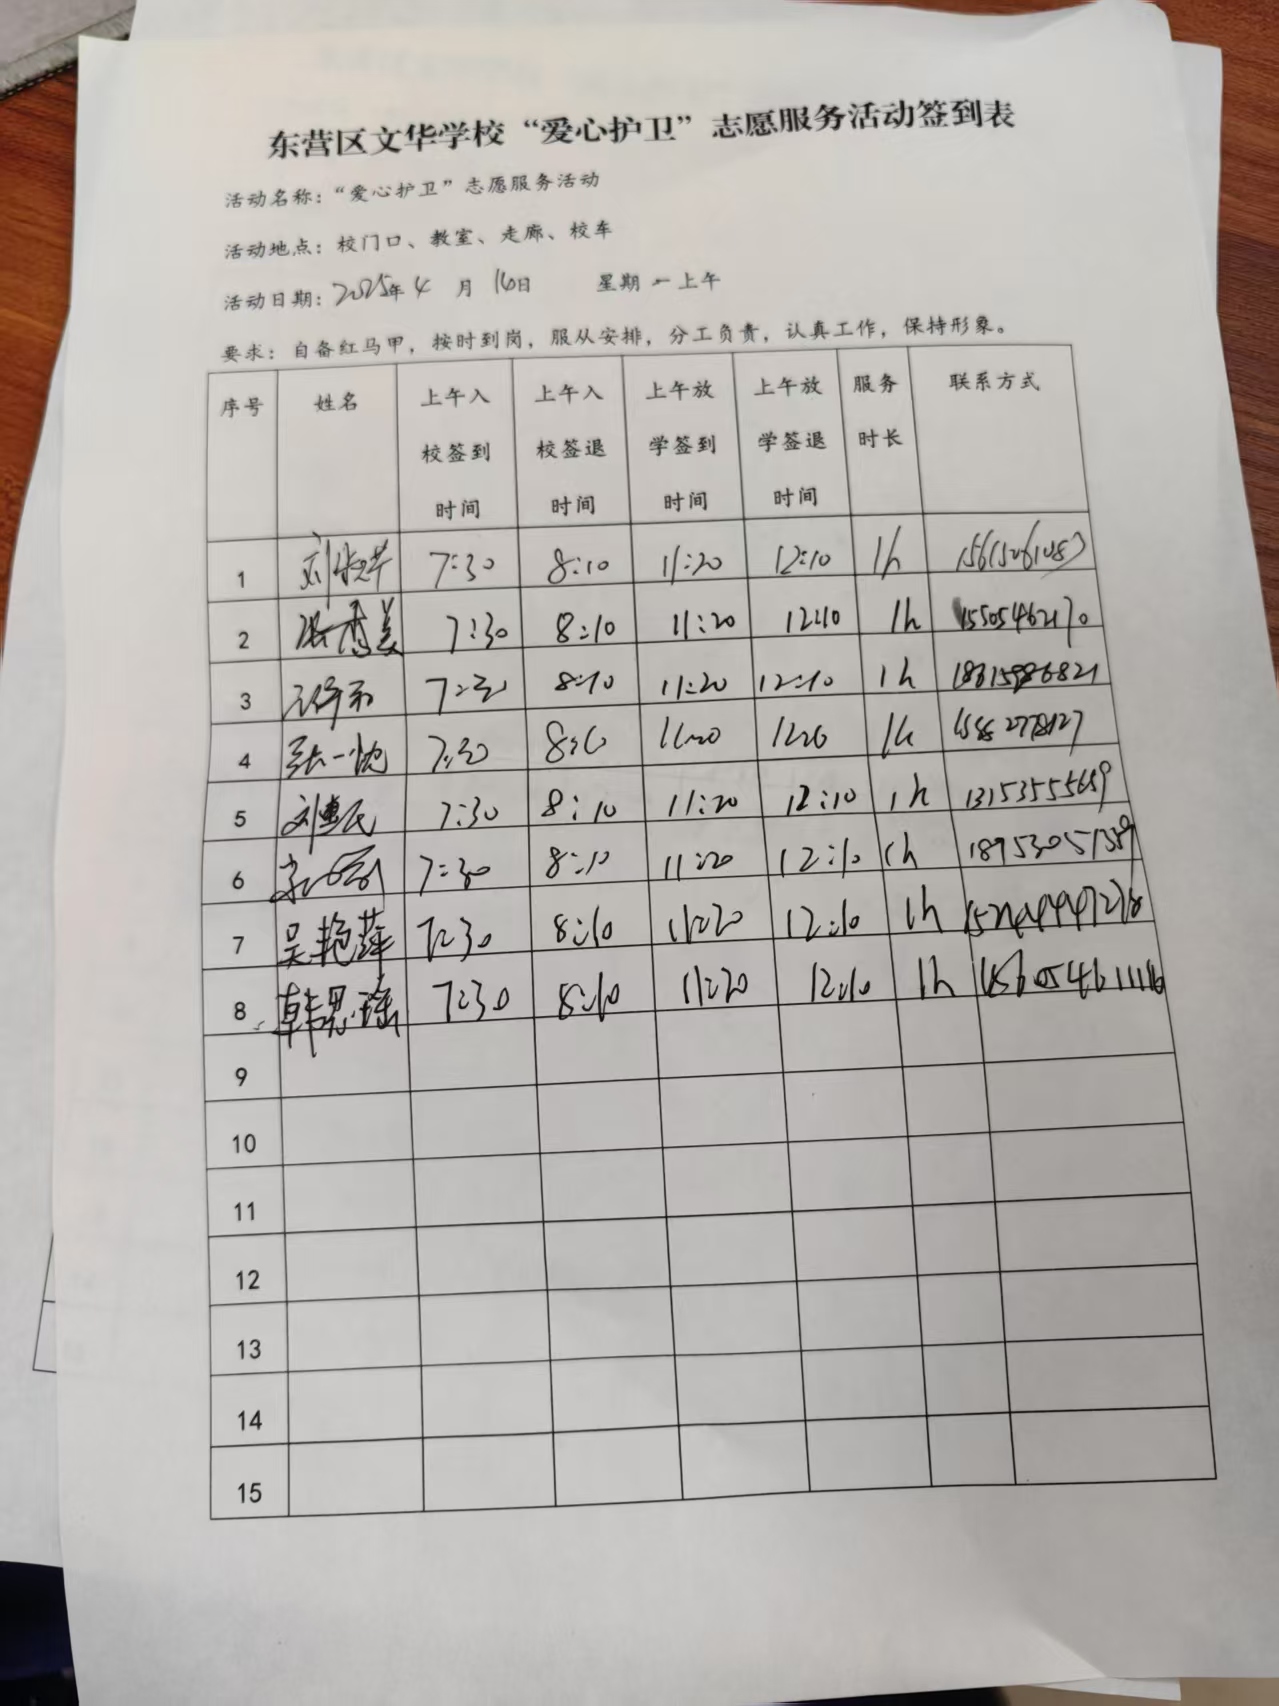 东营区文华学校“爱心护卫”志愿服务活动签到表
活动名称：“爱心护卫”志愿服务活动
活动地点：校门口、教室、走廊、校车
活动日期：2025年 4 月 16日 星期一上午
要求：自备红马甲，按时到岗，服从安排，分工负责，认真工作，保持形象。
序号 姓名 上午入校签到时间 上午入校签退时间 上午放学签到时间 上午放学签退时间 服务时长 联系方式
1 7:30 8:10 11:20 12:10 1h
2 7:30 8:10 11:20 12:10 1h 15505462170
3 7:30 8:10 11:20 12:10 1h
4 张一 7:30 11:20 1h
5 7:30 8:10 11:20 12:10 1h 13153555659
6 7:30 8:10 11:20 12:10 1h
7 吴艳萍 7:30 8:10 11:20 12:10 1h
8 韩思瑶 7:30 8:10 11:20 12:10 1h
9
10
11
12
13
14
15